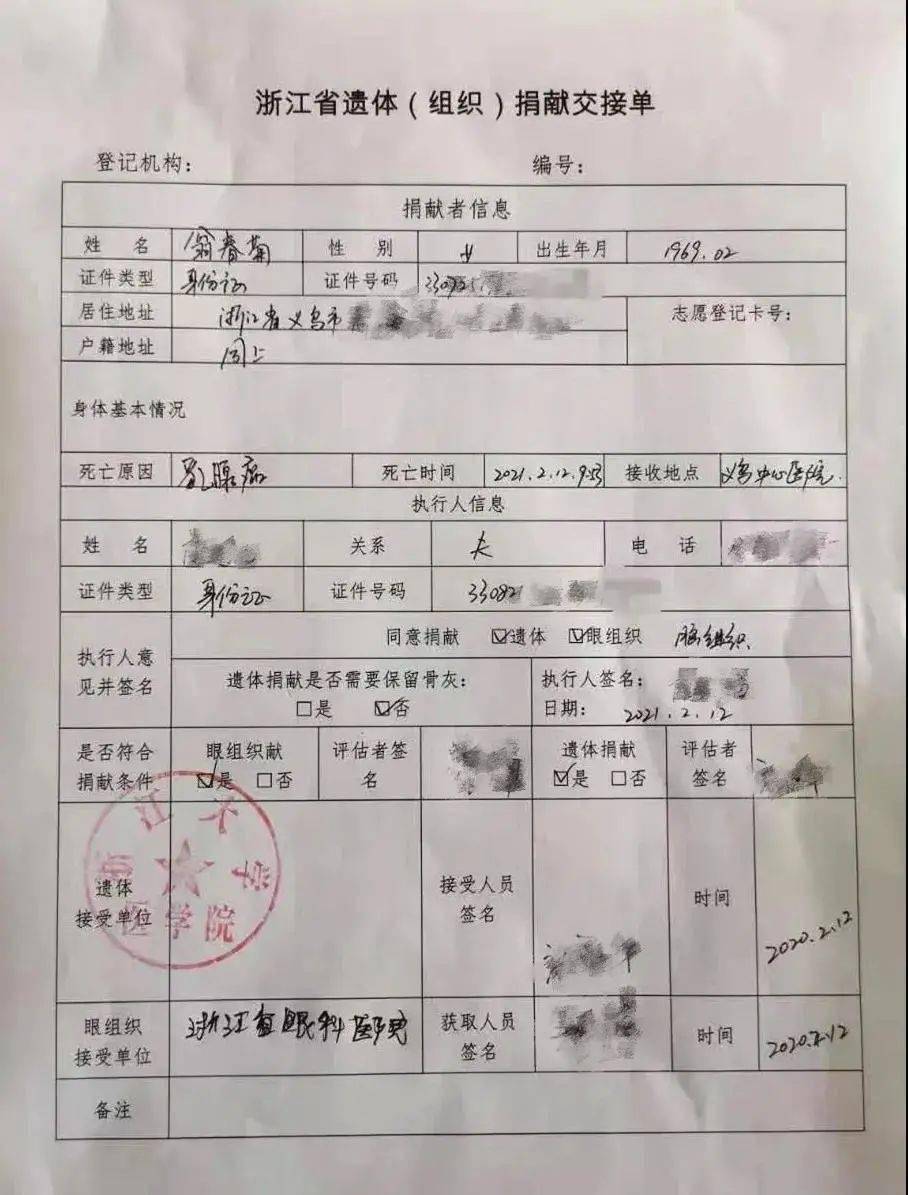 浙江省遗体（组织）捐献交接单
登记机构： 编号：
捐献者信息
姓 名 翁春菊 性 别 女 出生年月 1969.02
证件类型 身份证 证件号码 330825
居住地址 浙江省义乌市 志愿登记卡号：
户籍地址 同上
身体基本情况
死亡原因 乳腺癌 死亡时间 2021.2.12.9:53 接收地点 义乌中心医院.
执行人信息
姓 名 关系 夫 电 话
证件类型 身份证 证件号码 33082
执行人意见并签名 同意捐献 ☑遗体 ☑眼组织 脑组织
遗体捐献是否需要保留骨灰：
□是 ☑否
执行人签名：
日期： 2021.2.12
是否符合捐献条件 眼组织献 ☑是 □否 评估者签名 遗体捐献 ☑是 □否 评估者签名
遗体接受单位 浙江大学医学院 接受人员签名 时间 2020.2.12
眼组织接受单位 浙江省眼科医院 获取人员签名 时间 2020.2.12
备注